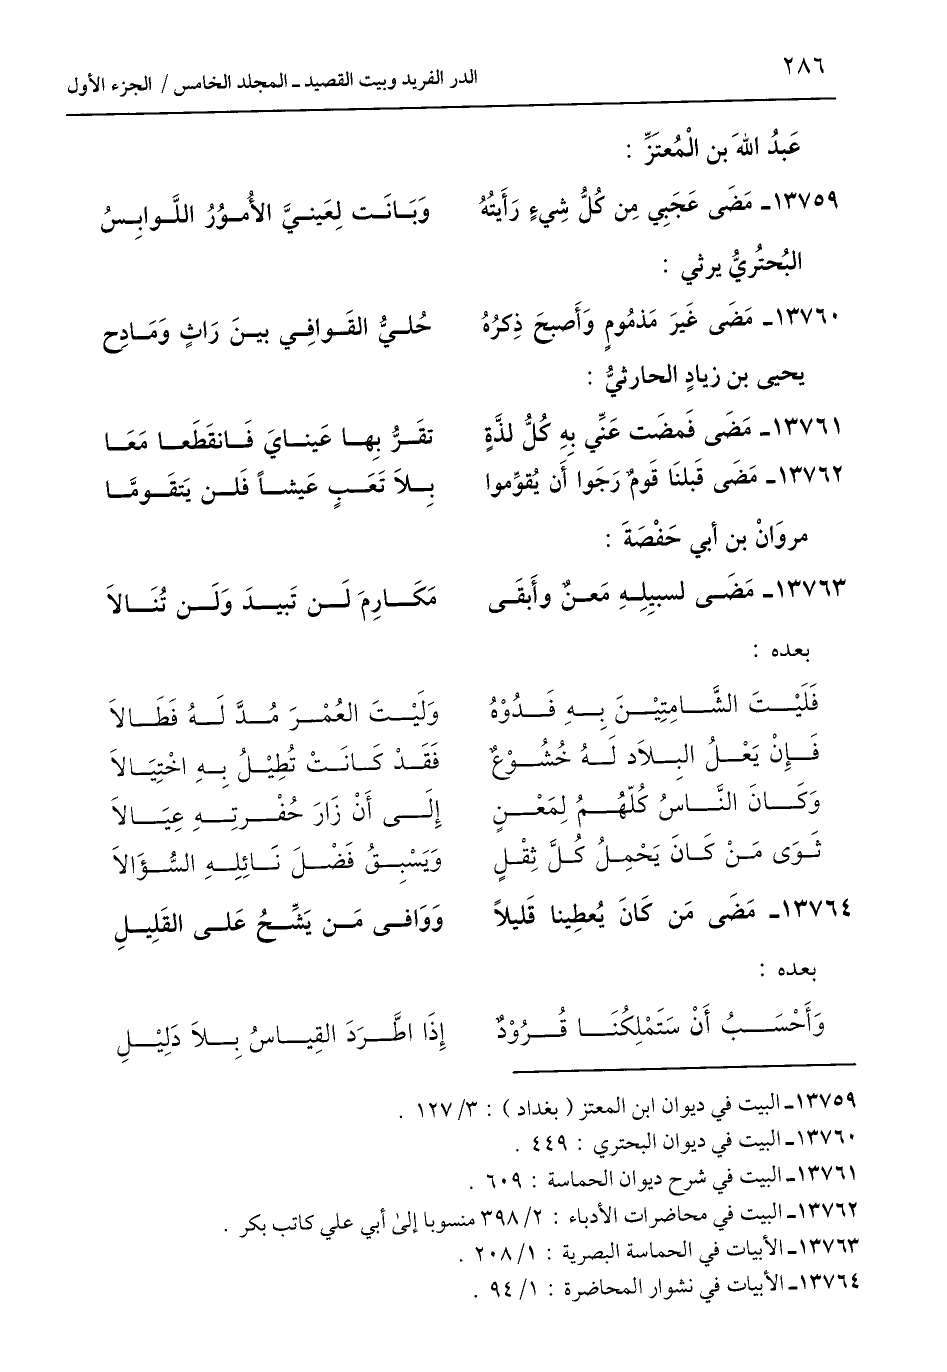 ٢٨٦
الدر الفريد وبيت القصيد ـ المجلد الخامس / الجزء الأول
عَبدُ اللهَ بن الْمُعتَزِّ :
١٣٧٥٩ـ مَضَى عَجَبِي مِن كُلُّ شِيءٍ رَأَيتُهُ وَبَانَت لِعَينيَّ الأُمورُ اللَّوابِسُ
البُحتُريُّ يرثي :
١٣٧٦٠ـ مَضَى غَيرَ مَذمُومٍ وَأَصبحَ ذِكرُهُ حُليُّ القَوافِي بينَ رَاثٍ وَمَادِحِ
يحيى بن زيادٍ الحارثيُّ :
١٣٧٦١ـ مَضَى فَمضَت عَنِّي بِهِ كُلُّ لذَّةٍ تقَرُّ بِها عَينايَ فَانقَطَعا مَعَا
١٣٧٦٢ـ مَضَى قَبلنَا قَومٌ رَجَوا أَن يُقوِّموا بِلاَ تَعَبٍ عَيشاً فَلن يَتقَومَّا
مروَانْ بن أبي حَفْصَةَ :
١٣٧٦٣ـ مَضَى لسبيلِهِ مَعنٌ وأَبقَى مَكَارِمَ لَن تَبيدَ وَلَن تُنَالاَ
بعده :
فَلَيْتَ الشَّامِتِيْنَ بِهِ فَدُوْهُ وَلَيْتَ العُمْرَ مُدَّ لَهُ فَطَالاَ
فَإِنْ يَعْلُ البِلاَد لَهُ خُشُوْعٌ فَقَدْ كَانَتْ تُطِيْلُ بِهِ اخْتِيَالاَ
وَكَانَ النَّاسُ كُلّهُمُ لِمَعْنٍ إِلَى أَنْ زَارَ حُفْرتِهِ عِيَالاَ
ثَوَى مَنْ كَانَ يَحْمِلُ كُلَّ ثِقْلٍ وَيَسْبِقُ فَضْلَ نَائِلِهِ السُّؤَالاَ
١٣٧٦٤ـ مَضَى مَن كَانَ يُعطِينا قَليلاً وَوَافى مَن يَشِّحُ عَلى القَليلِ
بعده :
وَأَحْسَبُ أَنْ سَتَمْلِكُنَا قُرُوْدٌ إِذَا اطَّرَدَ القِيَاسُ بِلاَ دَلِيْلِ
١٣٧٥٩ـ البيت في ديوان ابن المعتز ( بغداد ) : ٣/ ١٢٧ .
١٣٧٦٠ـ البيت في ديوان البحتري : ٤٤٩ .
١٣٧٦١ـ البيت في شرح ديوان الحماسة : ٦٠٩ .
١٣٧٦٢ـ البيت في محاضرات الأدباء : ٢/ ٣٩٨ منسوبا إلىٰ أبي علي كاتب بكر .
١٣٧٦٣ـ الأبيات في الحماسة البصرية : ١/ ٢٠٨ .
١٣٧٦٤ـ الأبيات في نشوار المحاضرة : ١/ ٩٤ .